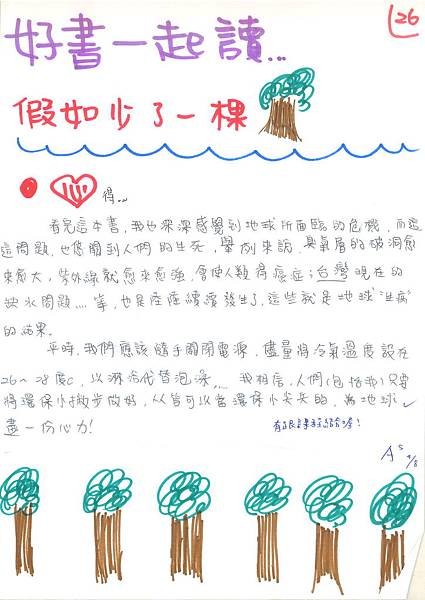 26
好書一起讀...
假如少了一棵
心得...
看完這本書，我也深深感覺到地球所面臨的危機，而這
這問題，也悠關到人們的生死，舉例來說，臭氧層的破洞愈
來愈大，紫外線就愈來愈強，會使人類得癌症；台灣現在的
缺水問題....等，也是陸陸續續發生了，這些就是地球"生病"
的結果。
平時，我們應該隨手關閉電源，儘量將冷氣溫度設在
26~28度C，以淋浴代替泡澡... 我相信，人們(包括我)只要
將環保小撇步做好，人人皆可以當環保小尖尖的，為地球
盡一份心力!
A⁵ 9/8